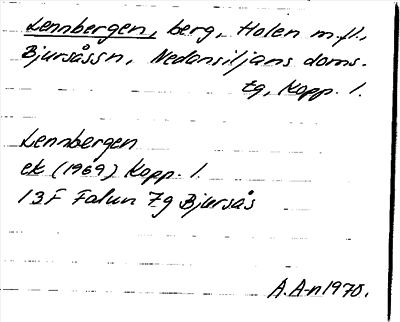 Lennbergen, berg, Holen m.fl.,
Bjursås sn, Nedansiljans doms.
tg, Kopp. l.
Lennbergen
ek (1969) Kopp. l.
13F Falun 7g Bjursås
A.A-n 1970.